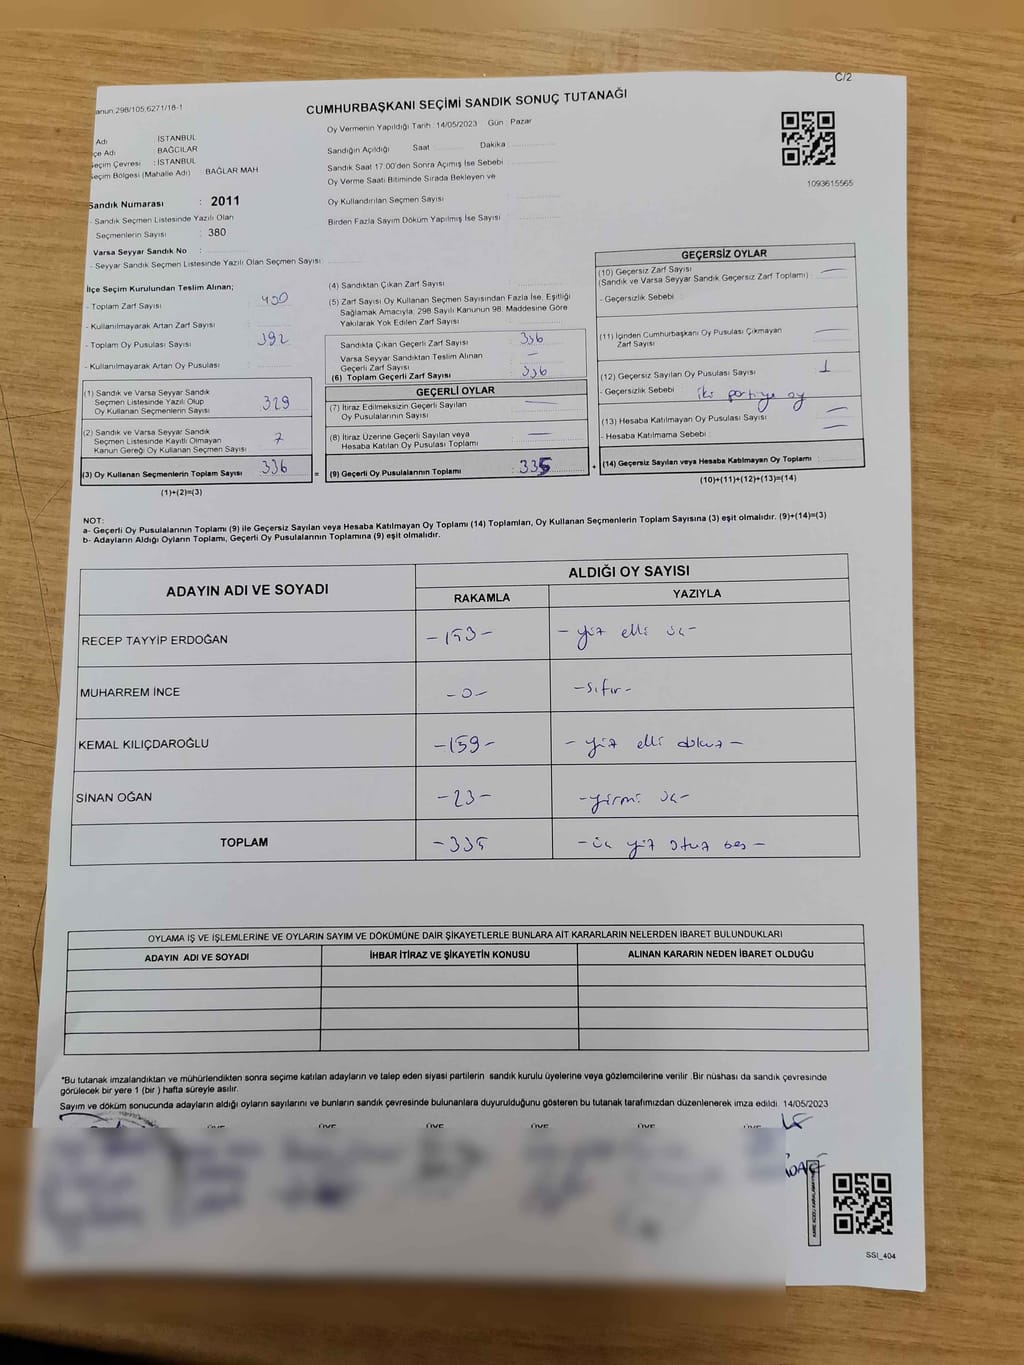 C/2
anun:298/105,6271/18-1
CUMHURBAŞKANI SEÇİMİ SANDIK SONUÇ TUTANAĞI
Adı İSTANBUL
çe Adı BAĞCILAR
Seçim Çevresi : İSTANBUL
Seçim Bölgesi (Mahalle Adı) BAĞLAR MAH
Sandık Numarası : 2011
- Sandık Seçmen Listesinde Yazılı Olan
Seçmenlerin Sayısı : 380
Varsa Seyyar Sandık No :
- Seyyar Sandık Seçmen Listesinde Yazılı Olan Seçmen Sayısı :
Oy Vermenin Yapıldığı Tarih : 14/05/2023 Gün : Pazar
Sandığın Açıldığı Saat Dakika
Sandık Saat 17:00'den Sonra Açımış İse Sebebi
Oy Verme Saati Bitiminde Sırada Bekleyen ve
Oy Kullandırılan Seçmen Sayısı
Birden Fazla Sayım Döküm Yapılmış İse Sayısı
1093615565
İlçe Seçim Kurulundan Teslim Alınan;
- Toplam Zarf Sayısı : 400
- Kullanılmayarak Artan Zarf Sayısı :
- Toplam Oy Pusulası Sayısı : 392
- Kullanılmayarak Artan Oy Pusulası :
(1) Sandık ve Varsa Seyyar Sandık
Seçmen Listesinde Yazılı Olup
Oy Kullanan Seçmenlerin Sayısı : 329
(2) Sandık ve Varsa Seyyar Sandık
Seçmen Listesinde Kayıtlı Olmayan
Kanun Gereği Oy Kullanan Seçmen Sayısı : 7
(3) Oy Kullanan Seçmenlerin Toplam Sayısı : 336
(1)+(2)=(3)
(4) Sandıktan Çıkan Zarf Sayısı :
(5) Zarf Sayısı Oy Kullanan Seçmen Sayısından Fazla İse, Eşitliği
Sağlamak Amacıyla, 298 Sayılı Kanunun 98. Maddesine Göre
Yakılarak Yok Edilen Zarf Sayısı :
Sandıkta Çıkan Geçerli Zarf Sayısı : 336
Varsa Seyyar Sandıktan Teslim Alınan
Geçerli Zarf Sayısı : —
(6) Toplam Geçerli Zarf Sayısı : 336
GEÇERLİ OYLAR
(7) İtiraz Edilmeksizin Geçerli Sayılan
Oy Pusulalarının Sayısı : —
(8) İtiraz Üzerine Geçerli Sayılan veya
Hesaba Katılan Oy Pusulası Toplamı : —
= (9) Geçerli Oy Pusulalarının Toplamı : 335 +
GEÇERSİZ OYLAR
(10) Geçersiz Zarf Sayısı : —
(Sandık ve Varsa Seyyar Sandık Geçersiz Zarf Toplamı)
- Geçersizlik Sebebi :
(11) İçinden Cumhurbaşkanı Oy Pusulası Çıkmayan
Zarf Sayısı : —
(12) Geçersiz Sayılan Oy Pusulası Sayısı : 1
- Geçersizlik Sebebi : iki partiye oy
(13) Hesaba Katılmayan Oy Pusulası Sayısı : —
- Hesaba Katılmama Sebebi : —
(14) Geçersiz Sayılan veya Hesaba Katılmayan Oy Toplamı :
(10)+(11)+(12)+(13)=(14)
NOT:
a- Geçerli Oy Pusulalarının Toplamı (9) ile Geçersiz Sayılan veya Hesaba Katılmayan Oy Toplamı (14) Toplamları, Oy Kullanan Seçmenlerin Toplam Sayısına (3) eşit olmalıdır. (9)+(14)=(3)
b- Adayların Aldığı Oyların Toplamı, Geçerli Oy Pusulalarının Toplamına (9) eşit olmalıdır.
ADAYIN ADI VE SOYADI ALDIĞI OY SAYISI
RAKAMLA YAZIYLA
RECEP TAYYİP ERDOĞAN -153- - yüz elli üç -
MUHARREM İNCE -0- -sıfır-
KEMAL KILIÇDAROĞLU -159- - yüz elli dokuz -
SİNAN OĞAN -23- -yirmi üç-
TOPLAM -335 - üç yüz otuz beş -
OYLAMA İŞ VE İŞLEMLERİNE VE OYLARIN SAYIM VE DÖKÜMÜNE DAİR ŞİKAYETLERLE BUNLARA AİT KARARLARIN NELERDEN İBARET BULUNDUKLARI
ADAYIN ADI VE SOYADI İHBAR İTİRAZ VE ŞİKAYETİN KONUSU ALINAN KARARIN NEDEN İBARET OLDUĞU
*Bu tutanak imzalandıktan ve mühürlendikten sonra seçime katılan adayların ve talep eden siyasi partilerin sandık kurulu üyelerine veya gözlemcilerine verilir .Bir nüshası da sandık çevresinde
görülecek bir yere 1 (bir ) hafta süreyle asılır.
Sayım ve döküm sonucunda adayların aldığı oyların sayılarını ve bunların sandık çevresinde bulunanlara duyurulduğunu gösteren bu tutanak tarafımızdan düzenlenerek imza edildi. 14/05/2023
ÜYE ÜYE ÜYE ÜYE ÜYE ÜYE
SSI_404